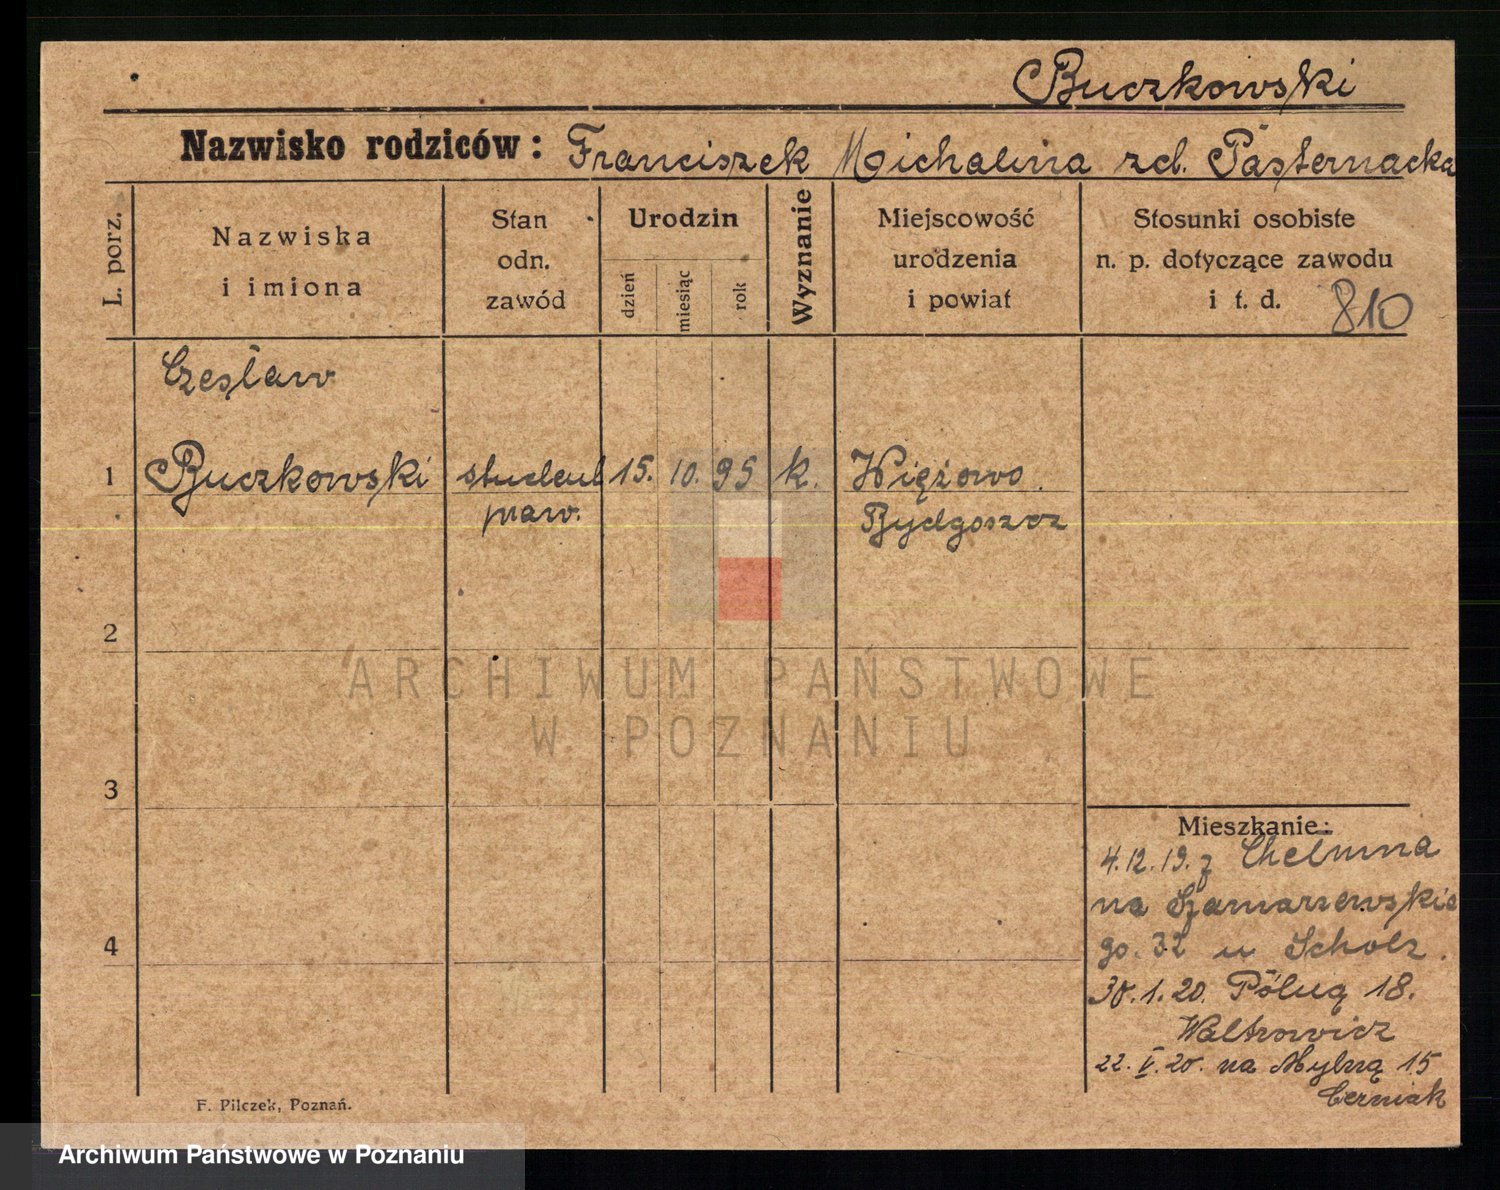 Buczkowski
Nazwisko rodziców: Franciszek Michalina zd. Pasternacka
L. porz.
Nazwiska
i imiona
Stan
odn.
zawód
Urodzin
dzień
miesiąc
rok
Wyznanie
Miejscowość
urodzenia
i powiat
Stosunki osobiste
n. p. dotyczące zawodu
i t. d. 810
Czesław
1 Buczkowski student 15. 10. 95 k. Więżowo.
praw. Bydgoszcz
2
ARCHIWUM PAŃSTWOWE
W POZNANIU
3
Mieszkanie:
4.12.19. z Chełmna
na Szamarzewskie
4
go. 32 u Scholz.
30.1.20. Pólną 18.
Waltrowicz
22. V. 20. na Mylną 15
Cerniak
F. Pilczek, Poznań.
Archiwum Państwowe w Poznaniu